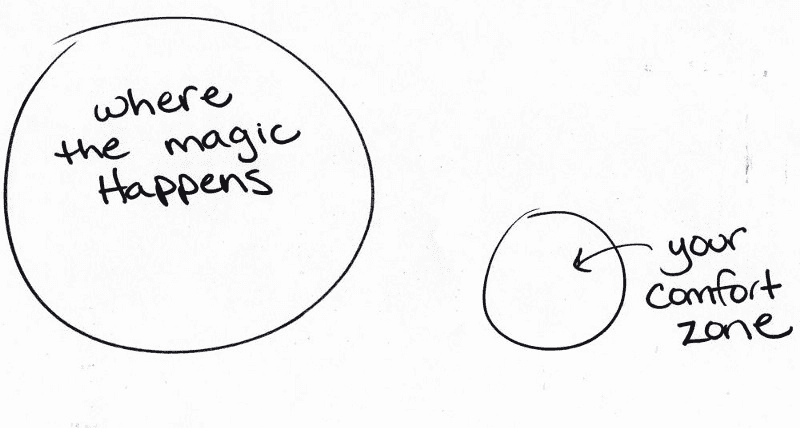 where
the magic
Happens
your
comfort
zone